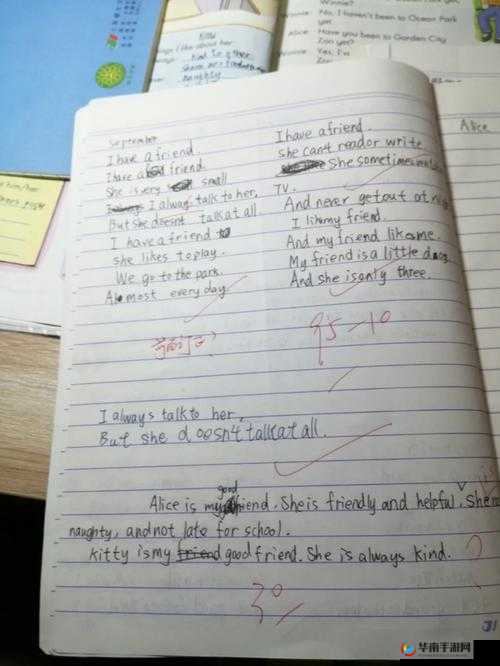 September
I have a friend.
I have a friend.
She is very small
I alway talk to her,
But she doesnt talk at all.
I have a friend
she likes to play.
We go to the park.
Almost every day.
I have a friend.
she can't read or write.
She sometimes
TV.
And never get out at
I like my friend.
And my friend likes me.
My friend is a little dog.
And she is only three.
95 -10
I always talk to her,
But she doesn't talk at all.
good
Alice is my friend. She is friendly and helpful, She
naughty, and not late for school.
kitty is my friend good friend. She is always kind.
Alice
No, I haven't been to Ocean Park
yet.
Alice: Have you been to Garden City
Zoo yet?
Winnie: Yes, I'v
Kitty
things I like about her
naughty
him/her
31
华南手游网